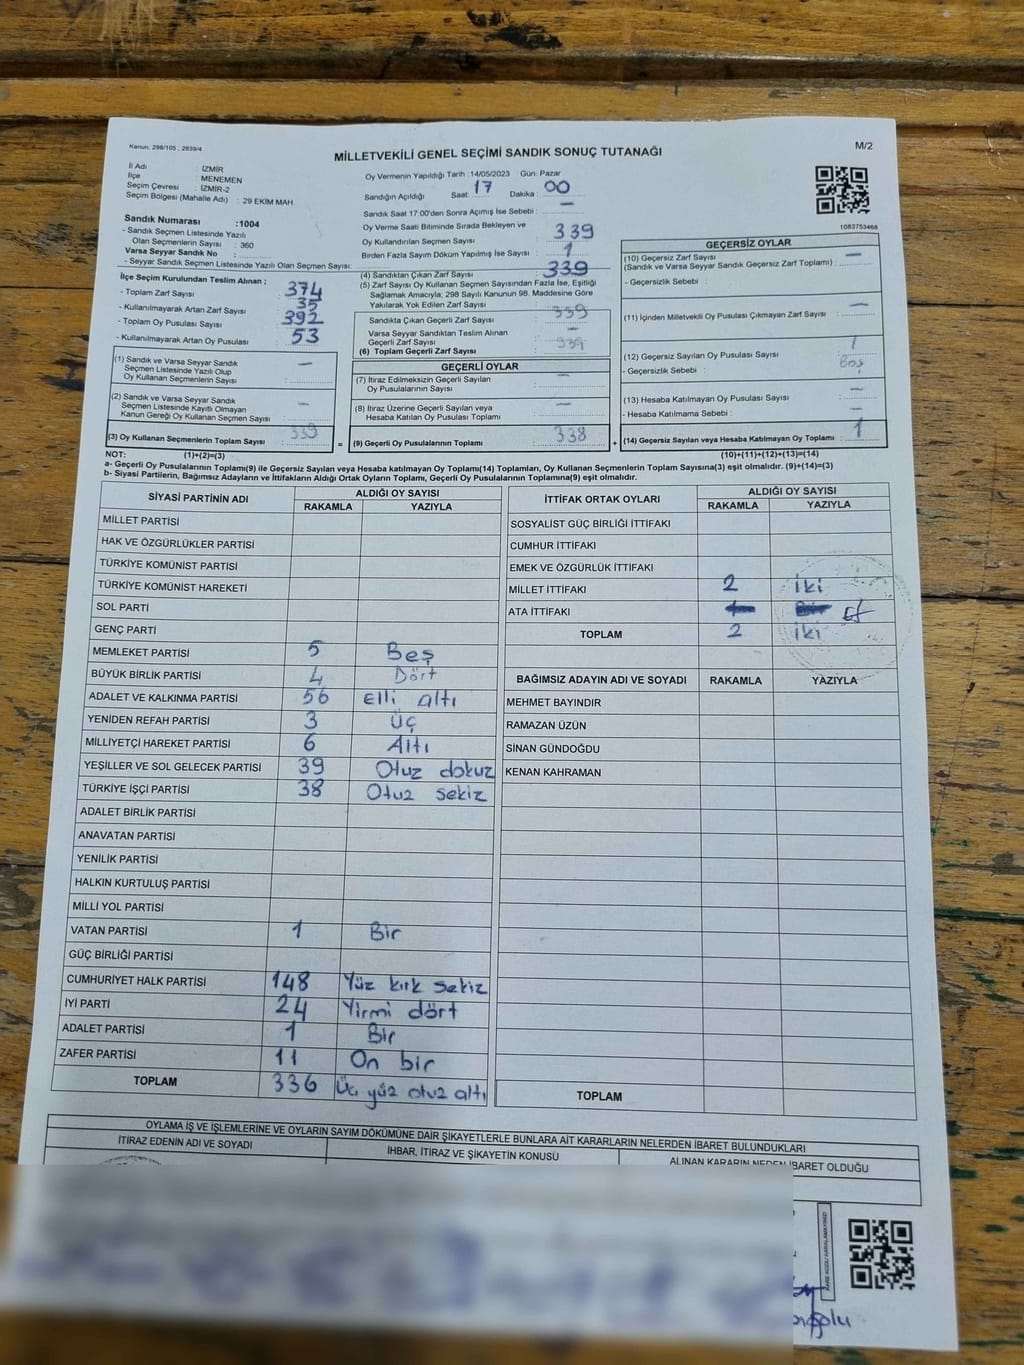 Kanun, 298/105 , 2839/4
MİLLETVEKİLİ GENEL SEÇİMİ SANDIK SONUÇ TUTANAĞI
M/2
İl Adı : İZMİR
İlçe : MENEMEN
Seçim Çevresi : İZMİR-2
Seçim Bölgesi (Mahalle Adı) : 29 EKİM MAH.
Sandık Numarası :1004
- Sandık Seçmen Listesinde Yazılı
Olan Seçmenlerin Sayısı : 360
Varsa Seyyar Sandık No :
- Seyyar Sandık Seçmen Listesinde Yazılı Olan Seçmen Sayısı:
Oy Vermenin Yapıldığı Tarih :14/05/2023 Gün: Pazar
Sandığın Açıldığı Saat: 17 Dakika : 00
Sandık Saat 17:00'den Sonra Açımış İse Sebebi : —
Oy Verme Saati Bitiminde Sırada Bekleyen ve
Oy Kullandırılan Seçmen Sayısı : 339
Birden Fazla Sayım Döküm Yapılmış İse Sayısı : 1
1083753468
İlçe Seçim Kurulundan Teslim Alınan ;
- Toplam Zarf Sayısı : 374
- Kullanılmayarak Artan Zarf Sayısı : 35
- Toplam Oy Pusulası Sayısı : 392
- Kullanılmayarak Artan Oy Pusulası : 53
(1) Sandık ve Varsa Seyyar Sandık
Seçmen Listesinde Yazılı Olup
Oy Kullanan Seçmenlerin Sayısı : —
(2) Sandık ve Varsa Seyyar Sandık
Seçmen Listesinde Kayıtlı Olmayan
Kanun Gereği Oy Kullanan Seçmen Sayısı : —
(3) Oy Kullanan Seçmenlerin Toplam Sayısı : 339
(4) Sandıktan Çıkan Zarf Sayısı : 339
(5) Zarf Sayısı Oy Kullanan Seçmen Sayısından Fazla İse, Eşitliği
Sağlamak Amacıyla; 298 Sayılı Kanunun 98. Maddesine Göre
Yakılarak Yok Edilen Zarf Sayısı :
Sandıkta Çıkan Geçerli Zarf Sayısı : 339
Varsa Seyyar Sandıktan Teslim Alınan
Geçerli Zarf Sayısı : —
(6) Toplam Geçerli Zarf Sayısı : 339
GEÇERLİ OYLAR
(7) İtiraz Edilmeksizin Geçerli Sayılan
Oy Pusulalarının Sayısı : —
(8) İtiraz Üzerine Geçerli Sayılan veya
Hesaba Katılan Oy Pusulası Toplamı : —
= (9) Geçerli Oy Pusulalarının Toplamı : 338 +
GEÇERSİZ OYLAR
(10) Geçersiz Zarf Sayısı
(Sandık ve Varsa Seyyar Sandık Geçersiz Zarf Toplamı) : —
- Geçersizlik Sebebi :
(11) İçinden Milletvekili Oy Pusulası Çıkmayan Zarf Sayısı : —
(12) Geçersiz Sayılan Oy Pusulası Sayısı : 1
- Geçersizlik Sebebi : Boş
(13) Hesaba Katılmayan Oy Pusulası Sayısı : —
- Hesaba Katılmama Sebebi : —
(14) Geçersiz Sayılan veya Hesaba Katılmayan Oy Toplamı : 1
NOT: (1)+(2)=(3) (10)+(11)+(12)+(13)=(14)
a- Geçerli Oy Pusulalarının Toplamı(9) ile Geçersiz Sayılan veya Hesaba katılmayan Oy Toplamı(14) Toplamları, Oy Kullanan Seçmenlerin Toplam Sayısına(3) eşit olmalıdır. (9)+(14)=(3)
b- Siyasi Partilerin, Bağımsız Adayların ve İttifakların Aldığı Ortak Oyların Toplamı, Geçerli Oy Pusulalarının Toplamına(9) eşit olmalıdır.
SİYASİ PARTİNİN ADI ALDIĞI OY SAYISI
RAKAMLA YAZIYLA
MİLLET PARTİSİ
HAK VE ÖZGÜRLÜKLER PARTİSİ
TÜRKİYE KOMÜNİST PARTİSİ
TÜRKİYE KOMÜNİST HAREKETİ
SOL PARTİ
GENÇ PARTİ
MEMLEKET PARTİSİ 5 Beş
BÜYÜK BİRLİK PARTİSİ 4 Dört
ADALET VE KALKINMA PARTİSİ 56 Elli altı
YENİDEN REFAH PARTİSİ 3 Üç
MİLLİYETÇİ HAREKET PARTİSİ 6 Altı
YEŞİLLER VE SOL GELECEK PARTİSİ 39 Otuz dokuz
TÜRKİYE İŞÇİ PARTİSİ 38 Otuz sekiz
ADALET BİRLİK PARTİSİ
ANAVATAN PARTİSİ
YENİLİK PARTİSİ
HALKIN KURTULUŞ PARTİSİ
MİLLİ YOL PARTİSİ
VATAN PARTİSİ 1 Bir
GÜÇ BİRLİĞİ PARTİSİ
CUMHURİYET HALK PARTİSİ 148 Yüz kırk sekiz
İYİ PARTİ 24 Yirmi dört
ADALET PARTİSİ 1 Bir
ZAFER PARTİSİ 11 On bir
TOPLAM 336 Üç yüz otuz altı
İTTİFAK ORTAK OYLARI ALDIĞI OY SAYISI
RAKAMLA YAZIYLA
SOSYALİST GÜÇ BİRLİĞİ İTTİFAKI
CUMHUR İTTİFAKI
EMEK VE ÖZGÜRLÜK İTTİFAKI
MİLLET İTTİFAKI 2 iki
ATA İTTİFAKI
TOPLAM 2 iki
BAĞIMSIZ ADAYIN ADI VE SOYADI RAKAMLA YAZIYLA
MEHMET BAYINDIR
RAMAZAN ÜZÜN
SİNAN GÜNDOĞDU
KENAN KAHRAMAN
TOPLAM
OYLAMA İŞ VE İŞLEMLERİNE VE OYLARIN SAYIM DÖKÜMÜNE DAİR ŞİKAYETLERLE BUNLARA AİT KARARLARIN NELERDEN İBARET BULUNDUKLARI
İTİRAZ EDENİN ADI VE SOYADI İHBAR, İTİRAZ VE ŞİKAYETİN KONUSU ALINAN KARARIN NEDEN İBARET OLDUĞU